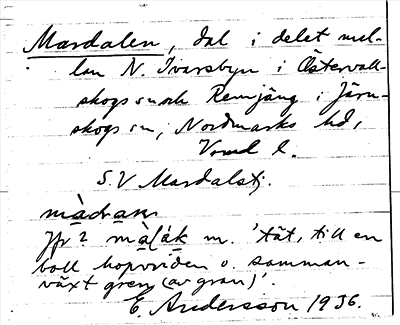 Mardalen, dal i delet mel-
lan N. Ivarsbyn i Östervall-
skogs sn och Rennjäng i Järn-
skogs sn, Nordmarks hd,
Vrml l.
S.V Mardalstj.
Jfr 2 m. 'tät, till en
boll hopvriden o. samman-
växt gren (av gran)'.
E. Andersson 1936.